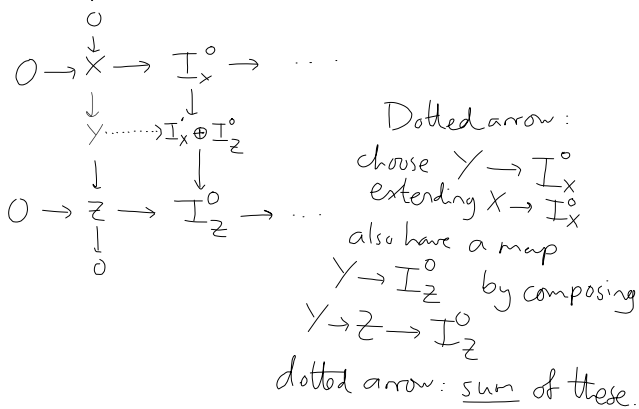 0
↓
0 → X → I_X^0 → ....
↓ ↓
Y ⋯⋯> I_X^• ⊕ I_Z^0
↓ ↓
0 → Z → I_Z^0 → ...
↓
0
Dotted arrow:
choose Y → I_X^0
extending X → I_X^0
also have a map
Y → I_Z^0 by composing
Y → Z → I_Z^0
dotted arrow: sum of these.